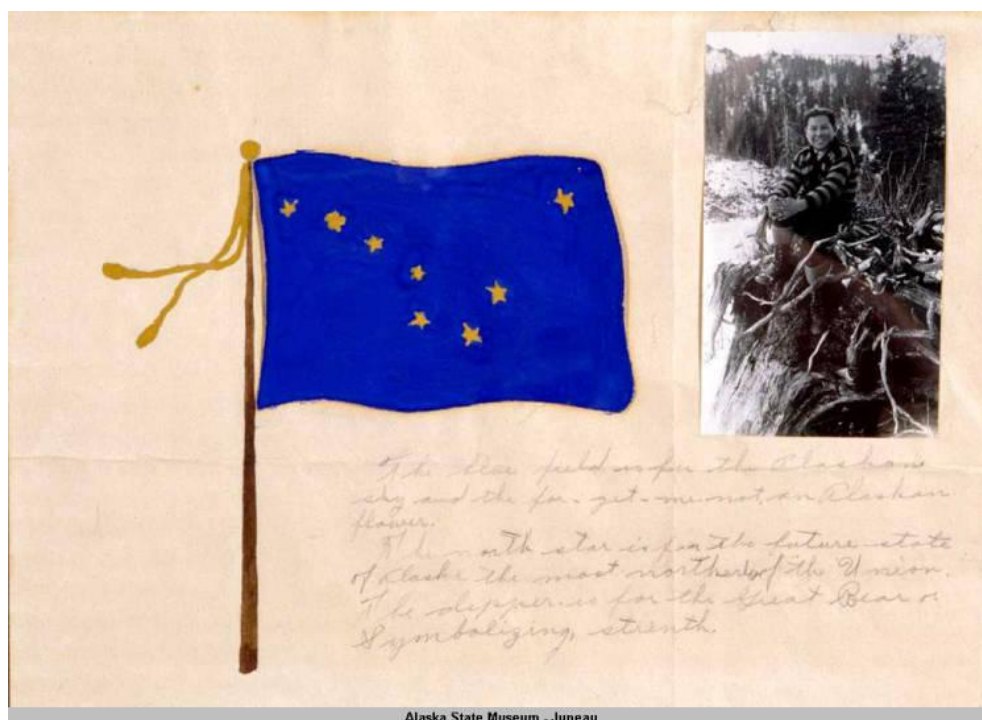 The blue field is for the Alaskan
sky and the for-get-me-not, an Alaskan
flower.
The north star is for the future state
of Alaska the most northerly of the Union.
The dipper is for the Great Bear
Symbolizing, strenth.
Alaska State Museum - Juneau